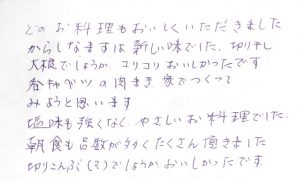 どのお料理もおいしくいただきました
からしなますは新しい味でした、切り干し
大根でしょうか、コリコリおいしかったです
春キャベツの肉まき 家でつくって
みようと思います
塩味も強くなく、やさしいお料理でした。
朝食も品数が多くたくさん頂きました
切りこんぶ(?)でしょうか、おいしかったです